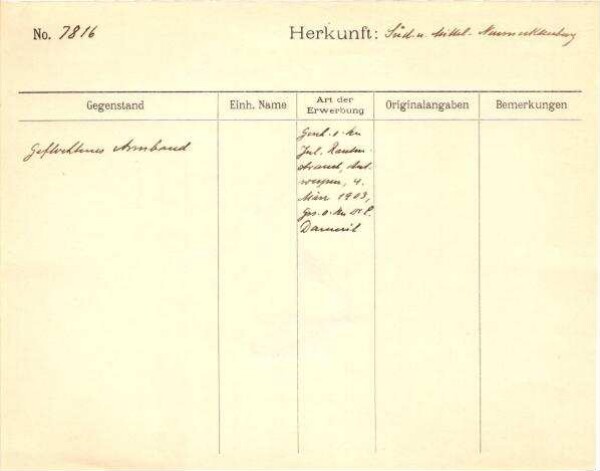 No. 7816
Herkunft: Süd u. Mittel-Neumecklenburg
Gegenstand
Einh. Name
Art der Erwerbung
Originalangaben
Bemerkungen
Geflochtenes Armband
Gesch. v. Hn
Jul. Rauten-
strauch, Ant-
werpen, 4.
März 1903,
Ges. v. Hn